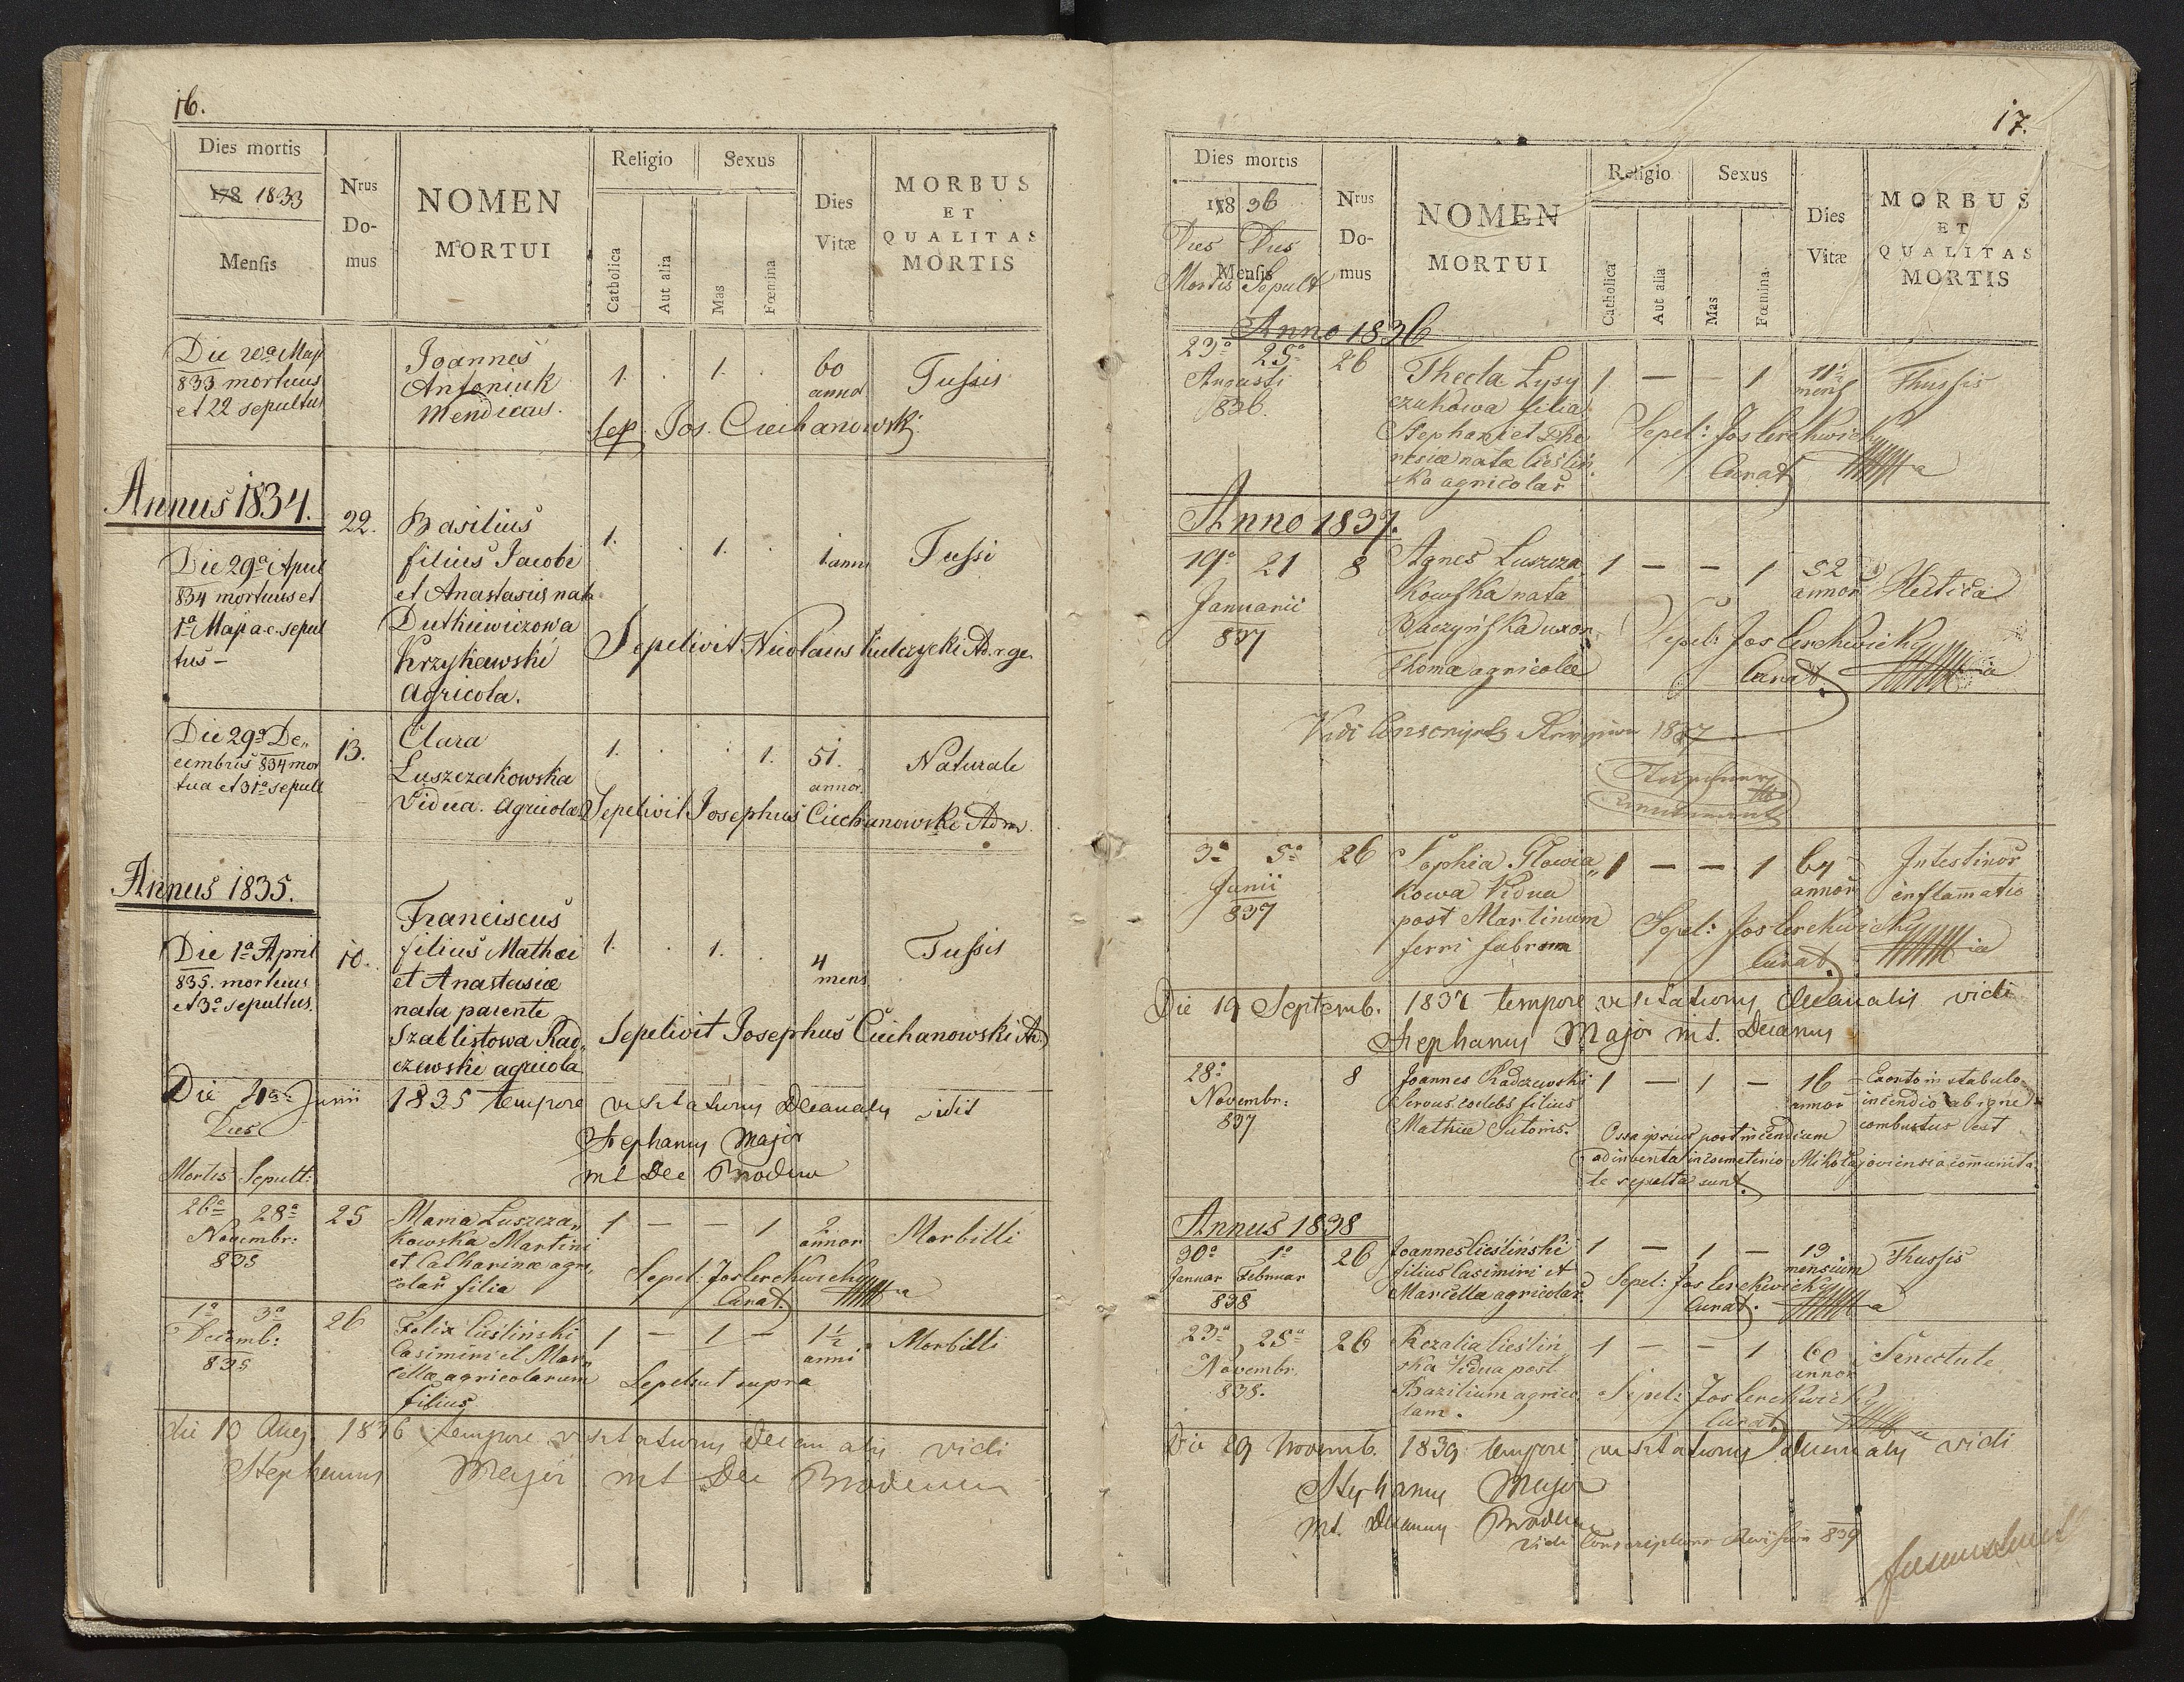 16.
Dies mortis
178 1833
Mensis
Nrus
Do-
mus
NOMEN
MORTUI
Religio
Catholica
Aut alia
Sexus
Mas
Fœmina
Dies
Vitæ
MORBUS
ET
QUALITAS
MORTIS
Die 20a Maji
833 mortuus
et 22 sepultus
Joannes
Antoniuk
Mendicus.
1. . 1. .
60
annor
Tussis
Sep. Jos. Ciechanowski
Annus 1834.
Die 29a April
834 mortuus et
1a Maji a.c. sepul
tus -
22.
Basilius
filius Jacobi
et Anastasiæ nata
Dutkiewiczowa
Krzyżewski
Agricola.
1. . 1. .
1 anni
Tussi
Sepelivit Nicolaus Kulczycki Ad.
Die 29a De„
cembris 834 mor
tua et 31a sepult
13.
Clara
Luszczakowska
Vidua. Agricolæ
1. . . 1.
51.
annor.
Naturale
Sepelivit Josephus Ciechanowski Adm.
Annus 1835.
Die 1a April
835. mortuus
et 3a sepultus.
10.
Franciscus
filius Mathæi
et Anastasiæ
nata parente
Szablistowa Rad„
czewski agricola
1. . 1. .
4
mens
Tussis
Sepelivit Josephus Ciechanowski Ad.
Die Junii 1835 tempore visitationis Decanalis vidit
Stephanus Major
mt Dec
Dies
Mortis Sepult:
26a 28a
Novembr:
835
25
Maria Luszcza„
kowska Martini
et Catharinæ agri„
colar filia
1 — — 1
2
annor
Morbilli
Sepel: Jos
Curat.
1a 3a
Decemb:
835
26
Felix Cieśliński
Casimiri et Mar„
cellæ agricolarum
filius
1 — 1 —
1½
anni
Morbilli
Sepel: ut supra
die 10 Aug 1836 tempore visitationis Decanalis vidi
Stephanus Major mt Dec
17.
Dies mortis
178 36
Dies Dies
Mensis
Mortis Sepult
Nrus
Do-
mus
NOMEN
MORTUI
Religio
Catholica
Aut alia
Sexus
Mas
Fœmina
Dies
Vitæ
MORBUS
ET
QUALITAS
MORTIS
Anno 1836
23a 25a
Augusti
836.
26
Thecla Łysy
czukowa filia
Stephani et The
resiæ natæ Cieśliń
ska agricolar
1 — — 1
mens
Thussis
Sepel: Jos
Curat
Anno 1837.
19a 21
Januarii
837
8
Agnes Luszcza
kowska nata
Baczyńska uxor
Thoma agricolæ
1 — — 1
52
annor
Hectica
Sepel: Jos
Curat.
Vidi 1837
3a 5a
Junii
837
26
Sophia Głowia„
kowa Vidua
post Martinum
ferri fabrum
1 — — 1
64
annor
Intestinor
inflamatio
Sepel: Jos
Curat.
Die 19 Septemb. 1837 tempore visitationis decanalis vidi
Stephanus Major mt. Decanus
28a
Novembr:
837
8
Joannes Radczewski
Servus coelebs filius
Mathiæ Sutoris.
1 — 1 —
16
annor
Exorto in stabulo
incendio ab igne
combustus est
Ossa ipsius post incendium
adinventa in coemeterio Mikołajoviensi a comunita
te sepulta sunt.
Annus 1838
30a 1a
Januar Februar
838
26
Joannes Cieśliński
filius Casimiri et
Marcella agricolar.
1 — 1 —
13
mensium
Thussis
Sepel: Jos
Curat.
23a 25a
Novembr.
838.
26
Rozalia Cieśliń
ska Vidua post
Bazilium agrico
lam.
1 — — 1
60
annor
Senectute
Sepel: Jos
Curat
Die 29 Novemb. 1839 tempore visitationis decanalis vidi
Stephanus Major
mt. Decanus
vidi Conscriptions Revision 839